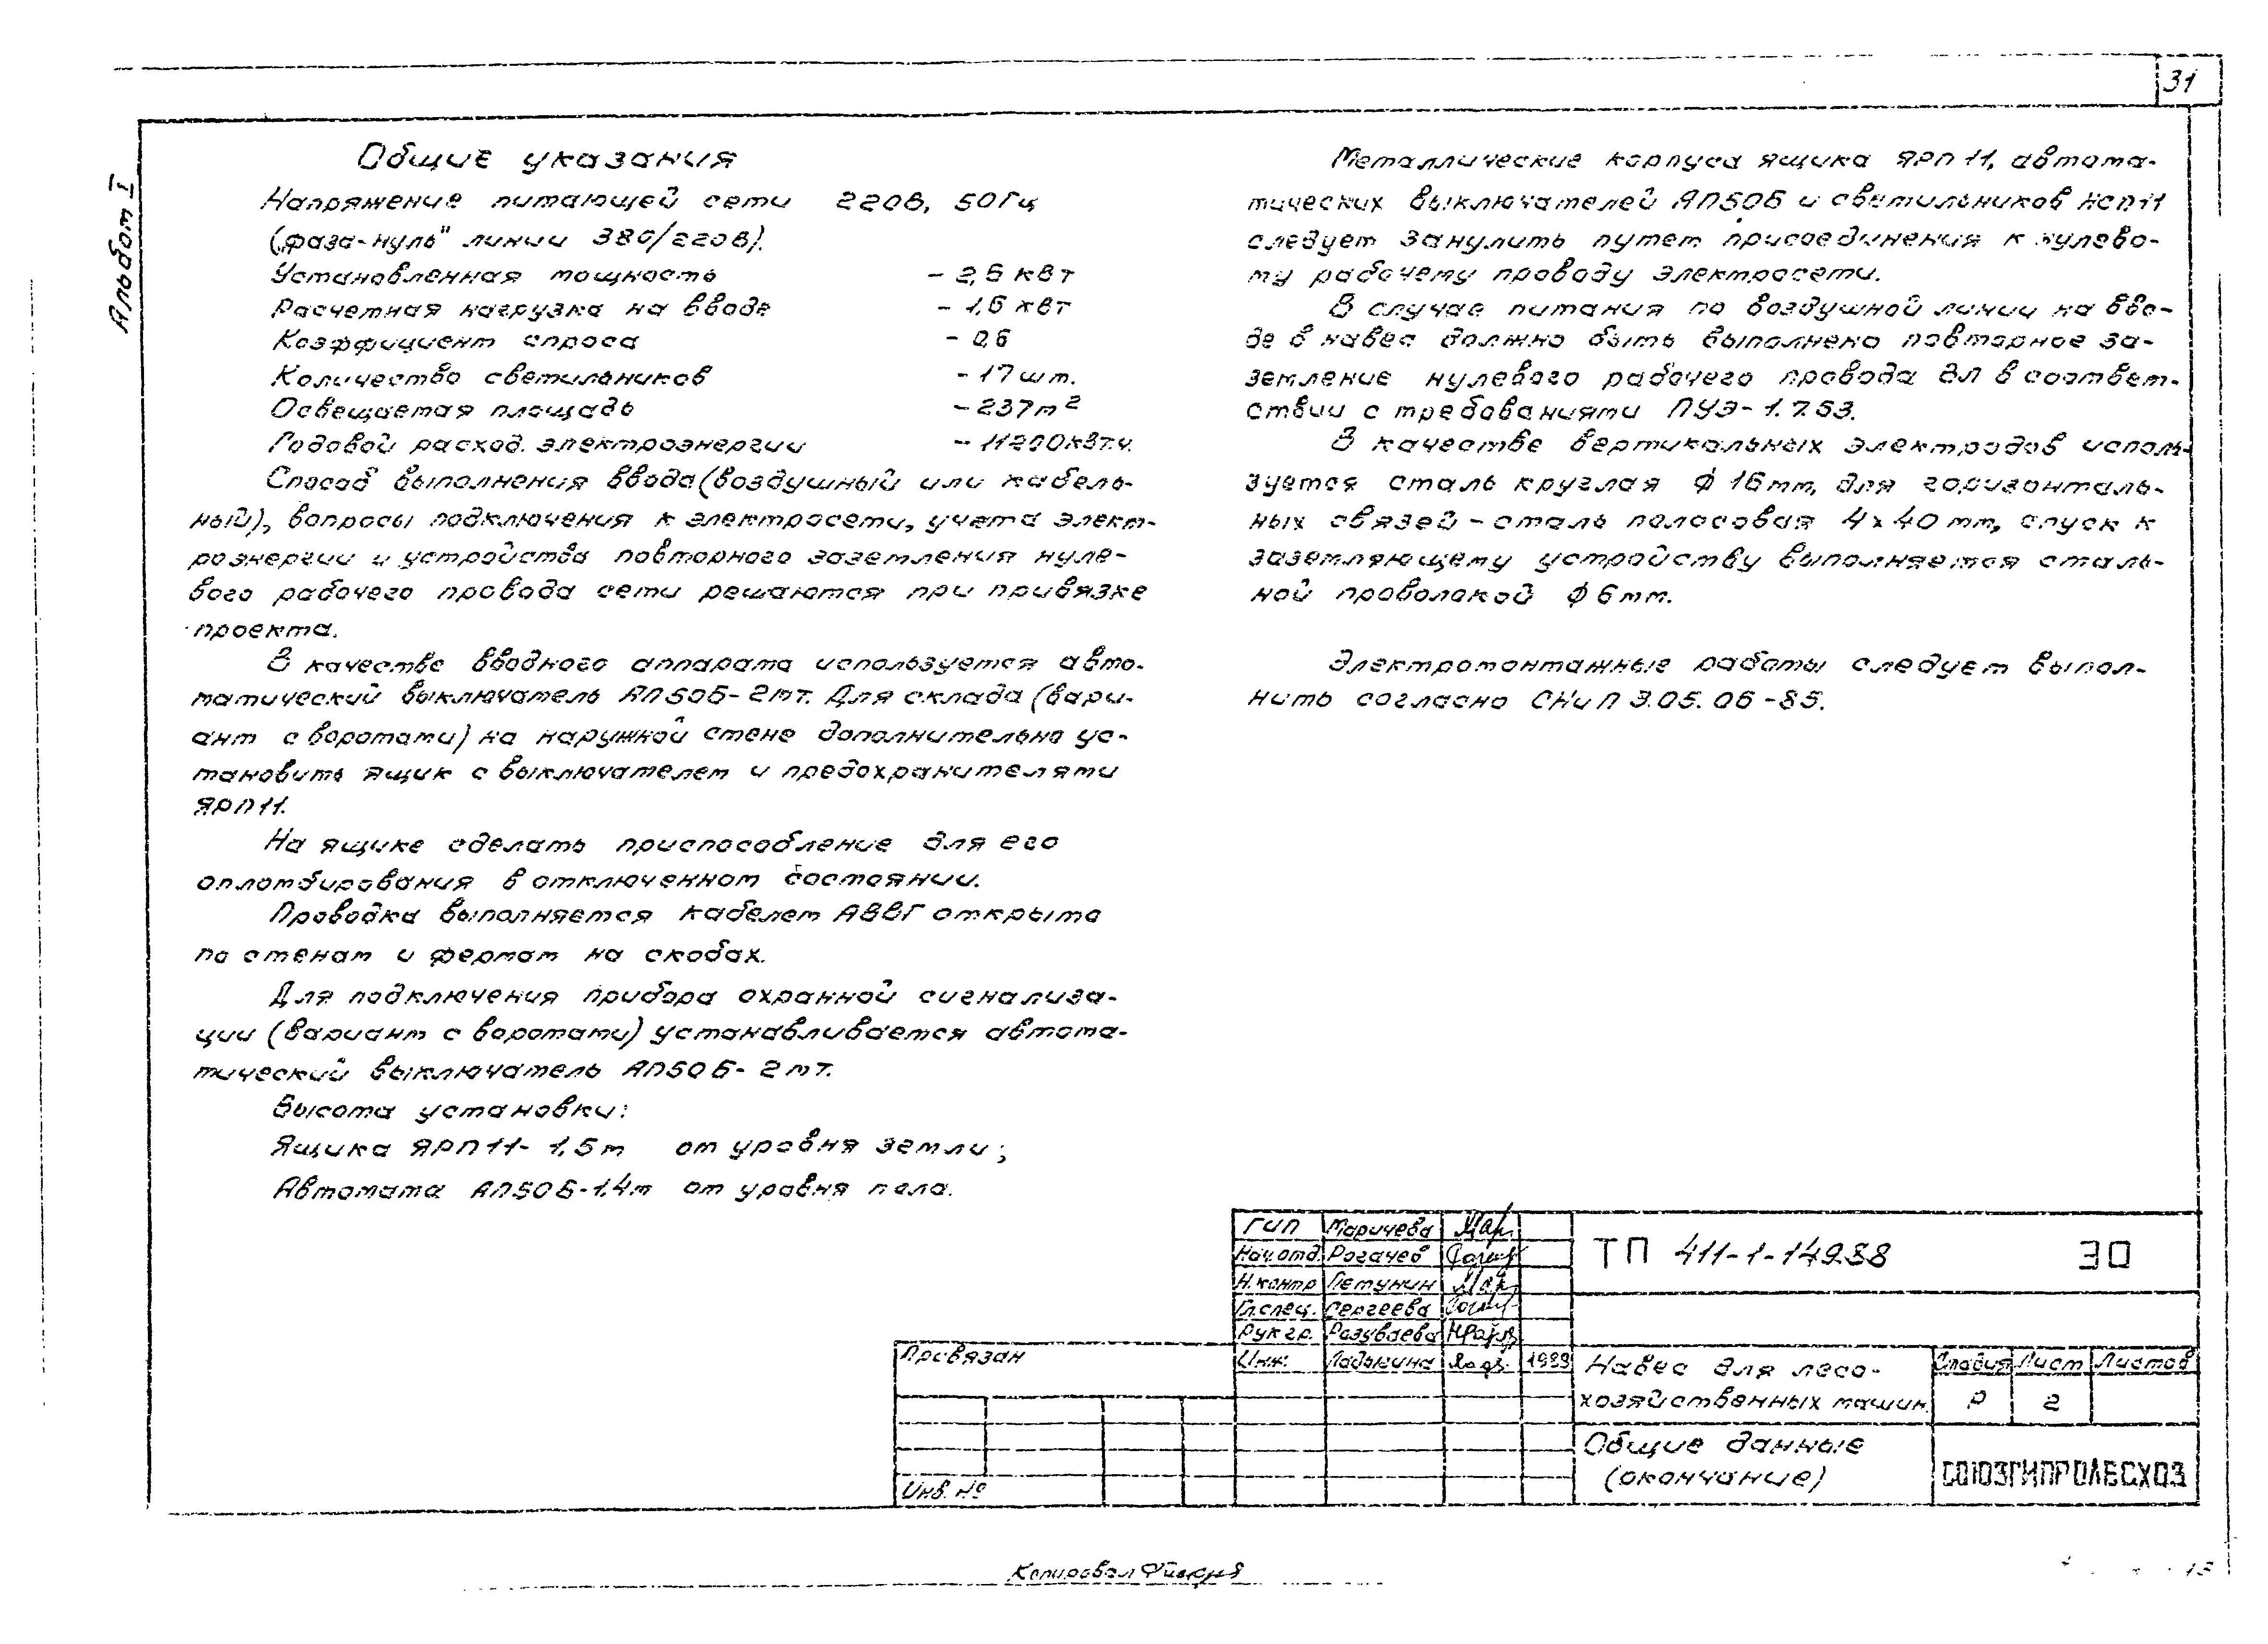 31
Альбом I
Общие указания
Напряжение питающей сети 220В, 50Гц
(„фаза-нуль" линии 380/220В).
Установленная мощность - 2,6 кВт
Расчетная нагрузка на вводе - 1,6 кВт
Коэффициент спроса - 0,6
Количество светильников - 17 шт.
Освещаемая площадь - 237м²
Годовой расход. электроэнергии - 11200кВт.ч.
Способ выполнения ввода (воздушный или кабель-
ный), вопросы подключения к электросети, учета элект-
роэнергии и устройства повторного заземления нуле-
вого рабочего провода сети решаются при привязке
проекта.
В качестве вводного аппарата используется авто-
матический выключатель АП50Б-2мт. Для склада (вари-
ант с воротами) на наружной стене дополнительно ус-
тановить ящик с выключателем и предохранителями
ЯРП11.
На ящике сделать приспособление для его
опломбирования в отключенном состоянии.
Проводка выполняется кабелем АВВГ открыто
по стенам и фермам на скобах.
Для подключения прибора охранной сигнализа-
ции (вариант с воротами) устанавливается автома-
тический выключатель АП50Б-2мт.
Высота установки:
Ящика ЯРП11- 1,5м от уровня земли;
Автомата АП50Б-1,4м от уровня пола.
Металлические корпуса ящика ЯРП 11, автома-
тических выключателей АП50Б и светильников НСП11
следует занулить путем присоединения к нулево-
му рабочему проводу электросети.
В случае питания по воздушной линии на вво-
де в навес должно быть выполнено повторное за-
земление нулевого рабочего провода ВЛ в соответ-
ствии с требованиями ПУЭ-1.7.63.
В качестве вертикальных электродов исполь-
зуется сталь круглая ϕ 16мм, для горизонталь-
ных связей - сталь полосовая 4×40мм, спуск к
заземляющему устройству выполняется сталь-
ной проволокой ϕ 6мм.
Электромонтажные работы следует выпол-
нить согласно СНиП 3.05.06-85.
ГИП Маричева
Нач.отд. Рогачев
Н.контр Петунин
Гл.спец. Сергеева
Рук гр. Разуваева
Инж. Ладыгина 1989
ТП 411-1-149.88 ЭО
Привязан
Инв. №
Навес для лесо-
хозяйственных машин.
Стадия Лист Листов
Р 2
Общие данные
(окончание)
СОЮЗГИПРОЛЕСХОЗ
Копировал